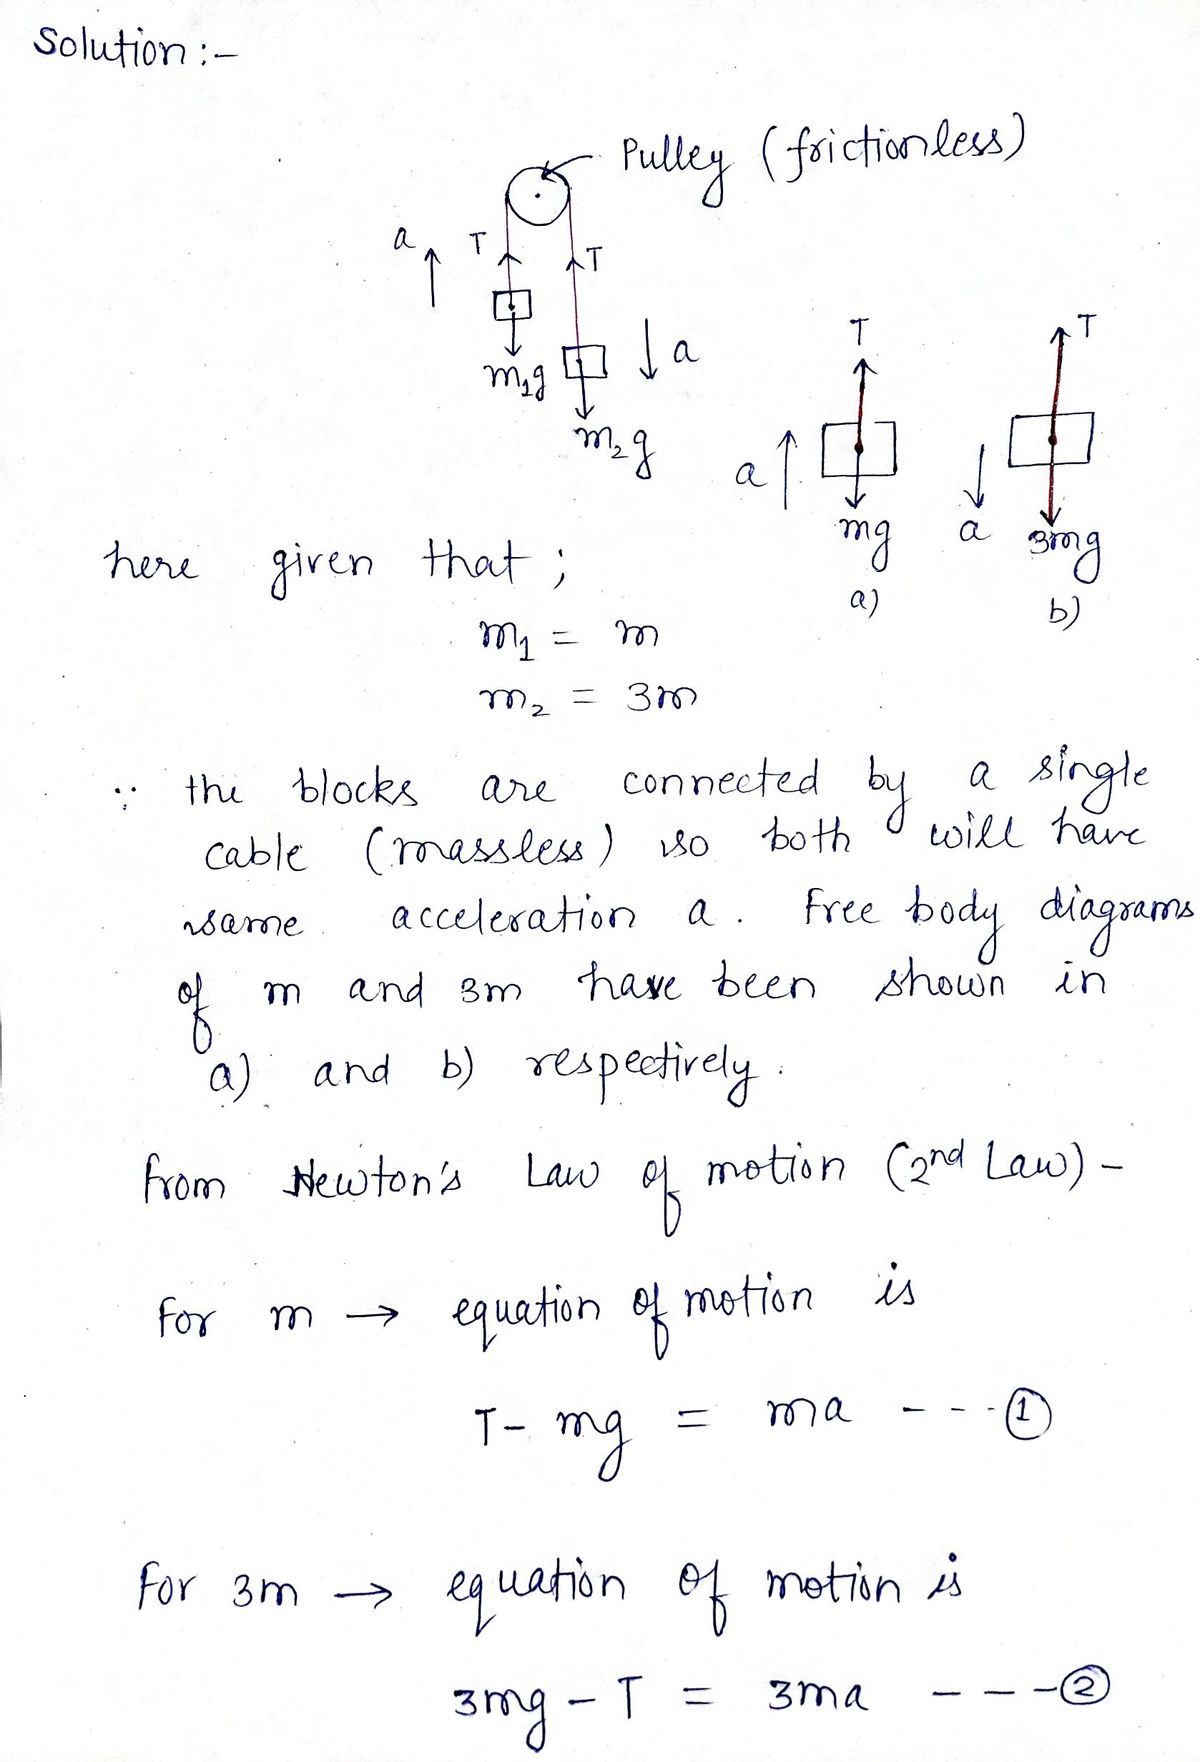 Solution :-
Pulley (frictionless)
a T
T
m₁g
a
m₂g
T
T
a
mg
a
3mg
a)
b)
here given that ;
m₁ = m
m₂ = 3m
∵ the blocks are connected by a single
cable (massless) so both will have
same acceleration a. Free body diagrams
of m and 3m have been shown in
a) and b) respectively.
from Newton's Law of motion (2nd Law) -
For m → equation of motion is
T - mg = ma --- ①
For 3m → equation of motion is
3mg - T = 3ma --- ②